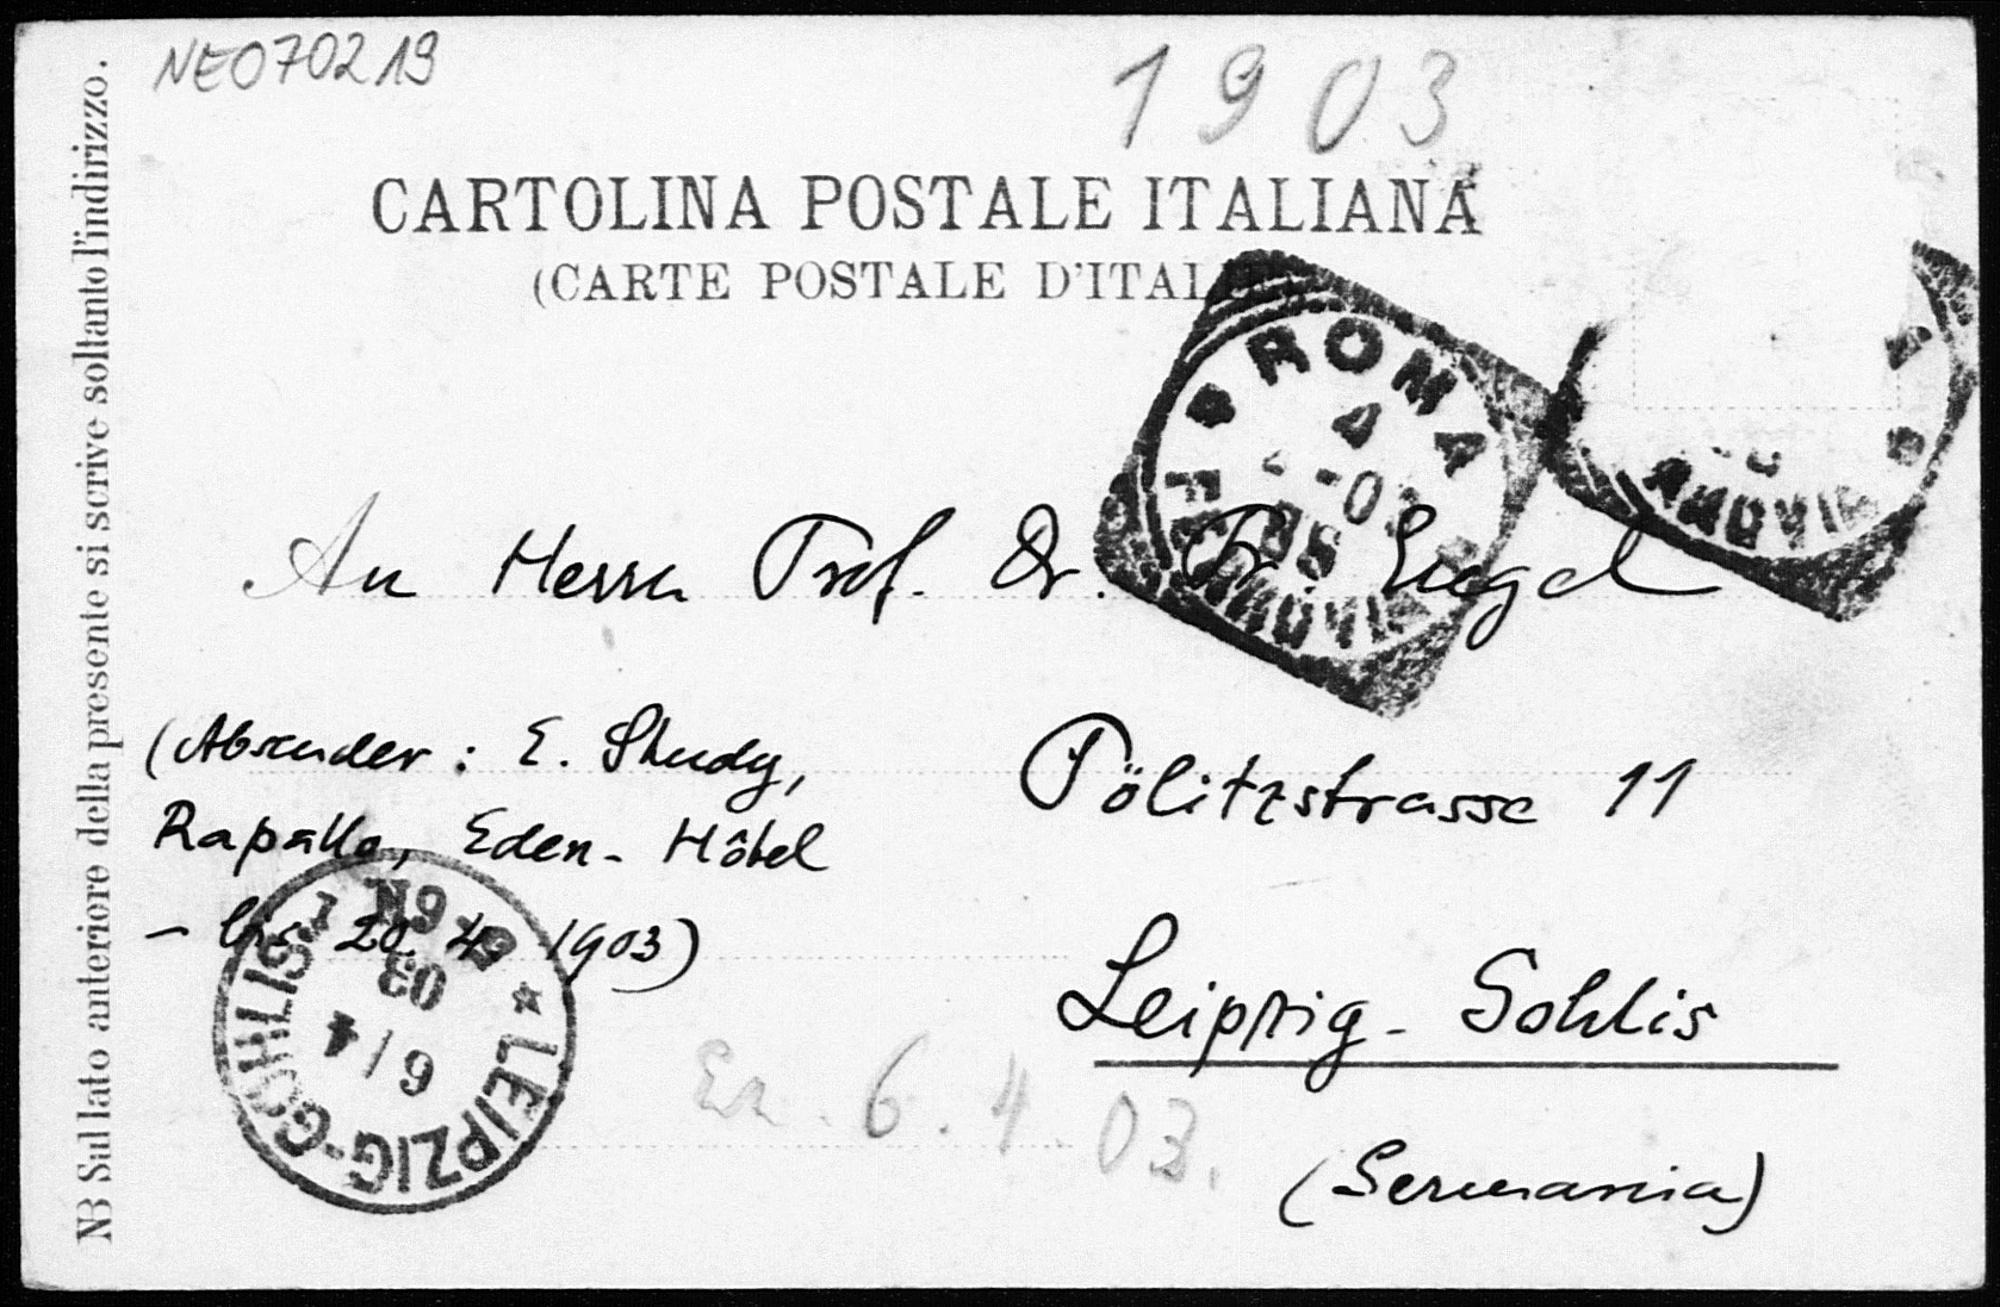 NE070219
1903
CARTOLINA POSTALE ITALIANA
(CARTE POSTALE D'ITALIE)
NB Sul lato anteriore della presente si scrive soltanto l'indirizzo.
ROMA
4
FERROVIA
FERROVIA
An Herrn Prof. Dr. Fr. Engel
(Absender: E. Study,
Rapallo, Eden-Hôtel
- bis 20. 4. 1903)
Pölitzstrasse 11
Leipzig-Gohlis
(Germania)
* LEIPZIG-GOHLIS 1
6/4
03
8-9N
Ez. 6.4.03.